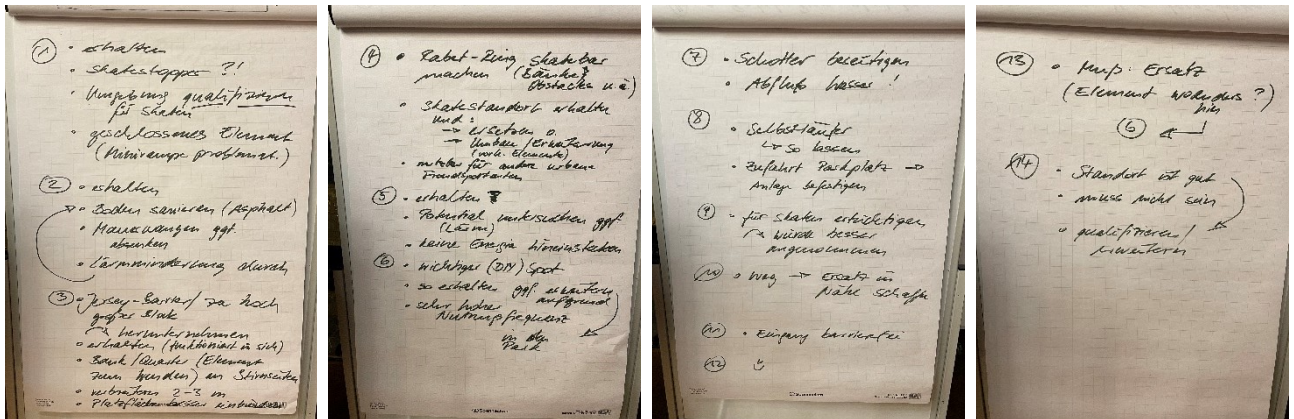 1
• erhalten
• Skatestopper ?!
• Umgebung qualifizieren
für Skaten
• geschlossenes Element
(Minirampe problemat.)
2
• erhalten
• Boden sanieren (Asphalt)
• Mauerwangen ggf.
absenken
• Lärmminderung durch
3
• Jersey-Barrier / zu hoch
großer Block
herunternehmen
• erhalten (funktioniert in sich)
• Bank / Quarter (Element
zum Wenden) an Stirnseiten
• verbreitern 2-3 m
• Platzfläche besser einbinden
4
• Rabet-Ring skatebar
machen (Bänke
Obstacles u.ä)
• Skatestandort erhalten
und:
→ ersetzen o.
→ Umbau / Erweiterung
(vorh. Elemente)
• nutzbar für andere urbane
Trendsportarten
5
• erhalten
• Potential untersuchen ggf.
(Lärm)
• keine Energie hineinstecken
6
• wichtiger (DIY) Spot
• so erhalten ggf. erweitern
aufgrund
• sehr hoher
Nutzungsfrequenz
in den
Park
7
• Schotter beseitigen
• Abfluß Wasser !
8
• Selbstläufer
↳ so lassen
• Zufahrt Parkplatz →
Anlage befestigen
9
• für Skaten ertüchtigen
würde besser
angenommen
10
• weg → Ersatz in
Nähe schaffen
11
• Eingang barrierefrei
12
13
• Hup. Ersatz
(Element woanders ?)
hin
6
14
• Standort ist gut
• muss nicht sein
• qualifizieren /
erweitern